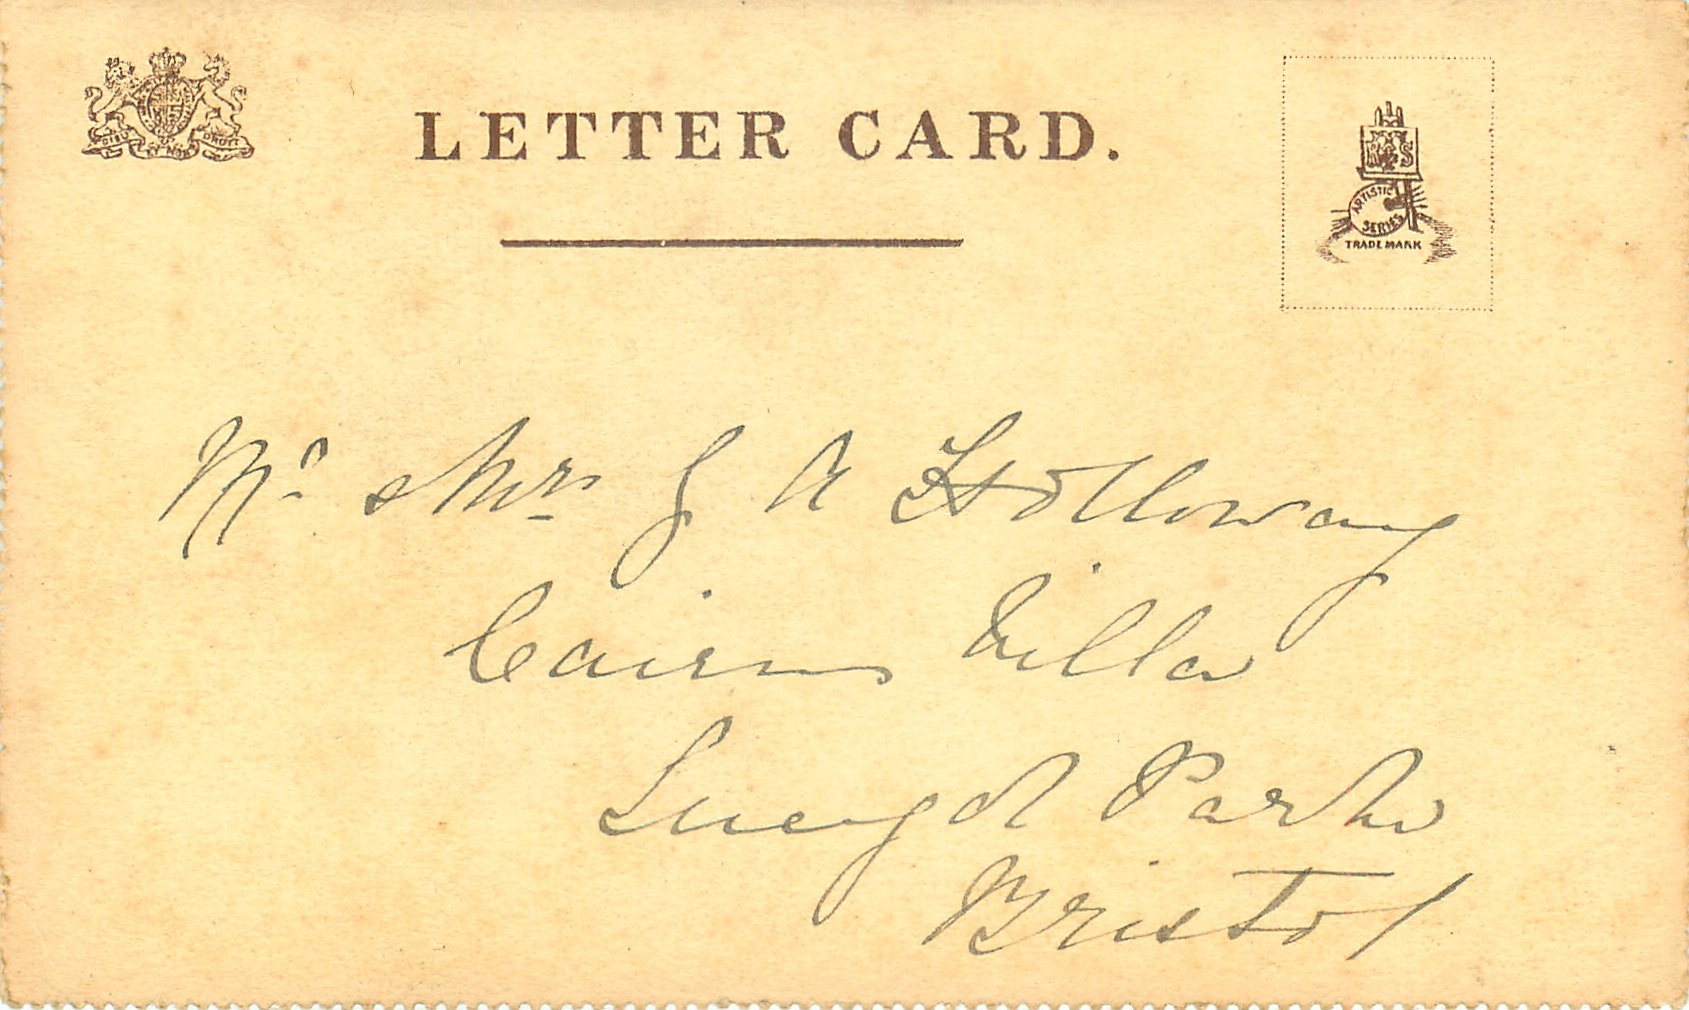 LETTER CARD.
DIEU ET MON DROIT
ARTISTIC
SERIES
TRADE MARK
Mr & Mrs J A Holloway
Cairns Villa
Sneyd Park
Bristol